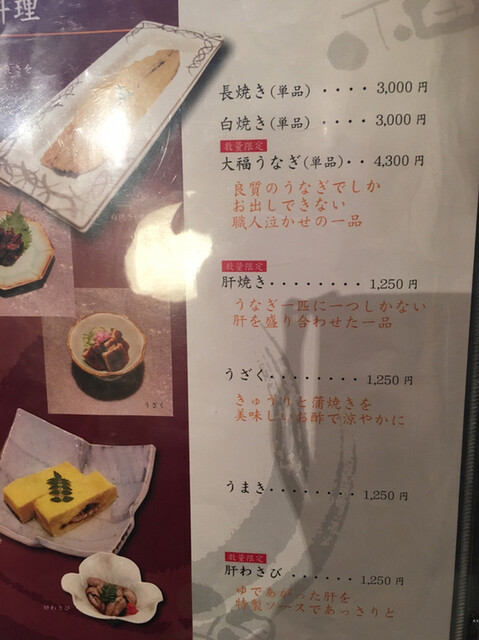 料理
長焼き(単品) ････ 3,000 円
白焼き(単品) ････ 3,000 円
数量限定
大福うなぎ(単品)･･ 4,300 円
良質のうなぎでしか
お出しできない
職人泣かせの一品
数量限定
肝焼き･････････ 1,250 円
うなぎ一匹に一つしかない
肝を盛り合わせた一品
うざく ････････ 1,250 円
きゅうりと蒲焼きを
美味しいお酢で涼やかに
うまき･････････ 1,250 円
数量限定
肝わさび ･･････ 1,250 円
ゆであがった肝を
特製ソースであっさりと
うざく
肝わさび